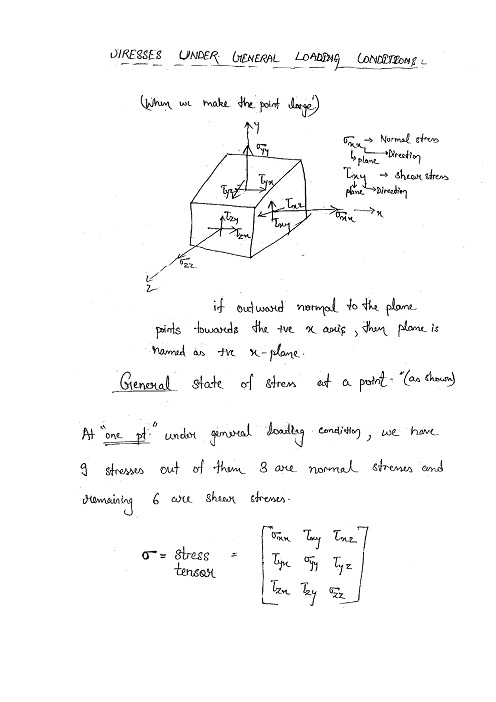 STRESSES UNDER GENERAL LOADING CONDITIONS
(When we make the point large)
y
σyy
σxx → Normal stress
plane → Direction
τxy → shear stress
plane → Direction
τyz τyx
τxz
τzy
τzx
τxy
σxx
x
σzz
z
if outward normal to the plane
points towards the +ve x axis, then plane is
named as +ve x-plane.
General state of stress at a point. "(as shown)
At "one pt." under general loading condition, we have
9 stresses out of them 3 are normal stresses and
remaining 6 are shear stresses.
σ = stress tensor = [σxx τxy τxz
τyx σyy τyz
τzx τzy σzz]